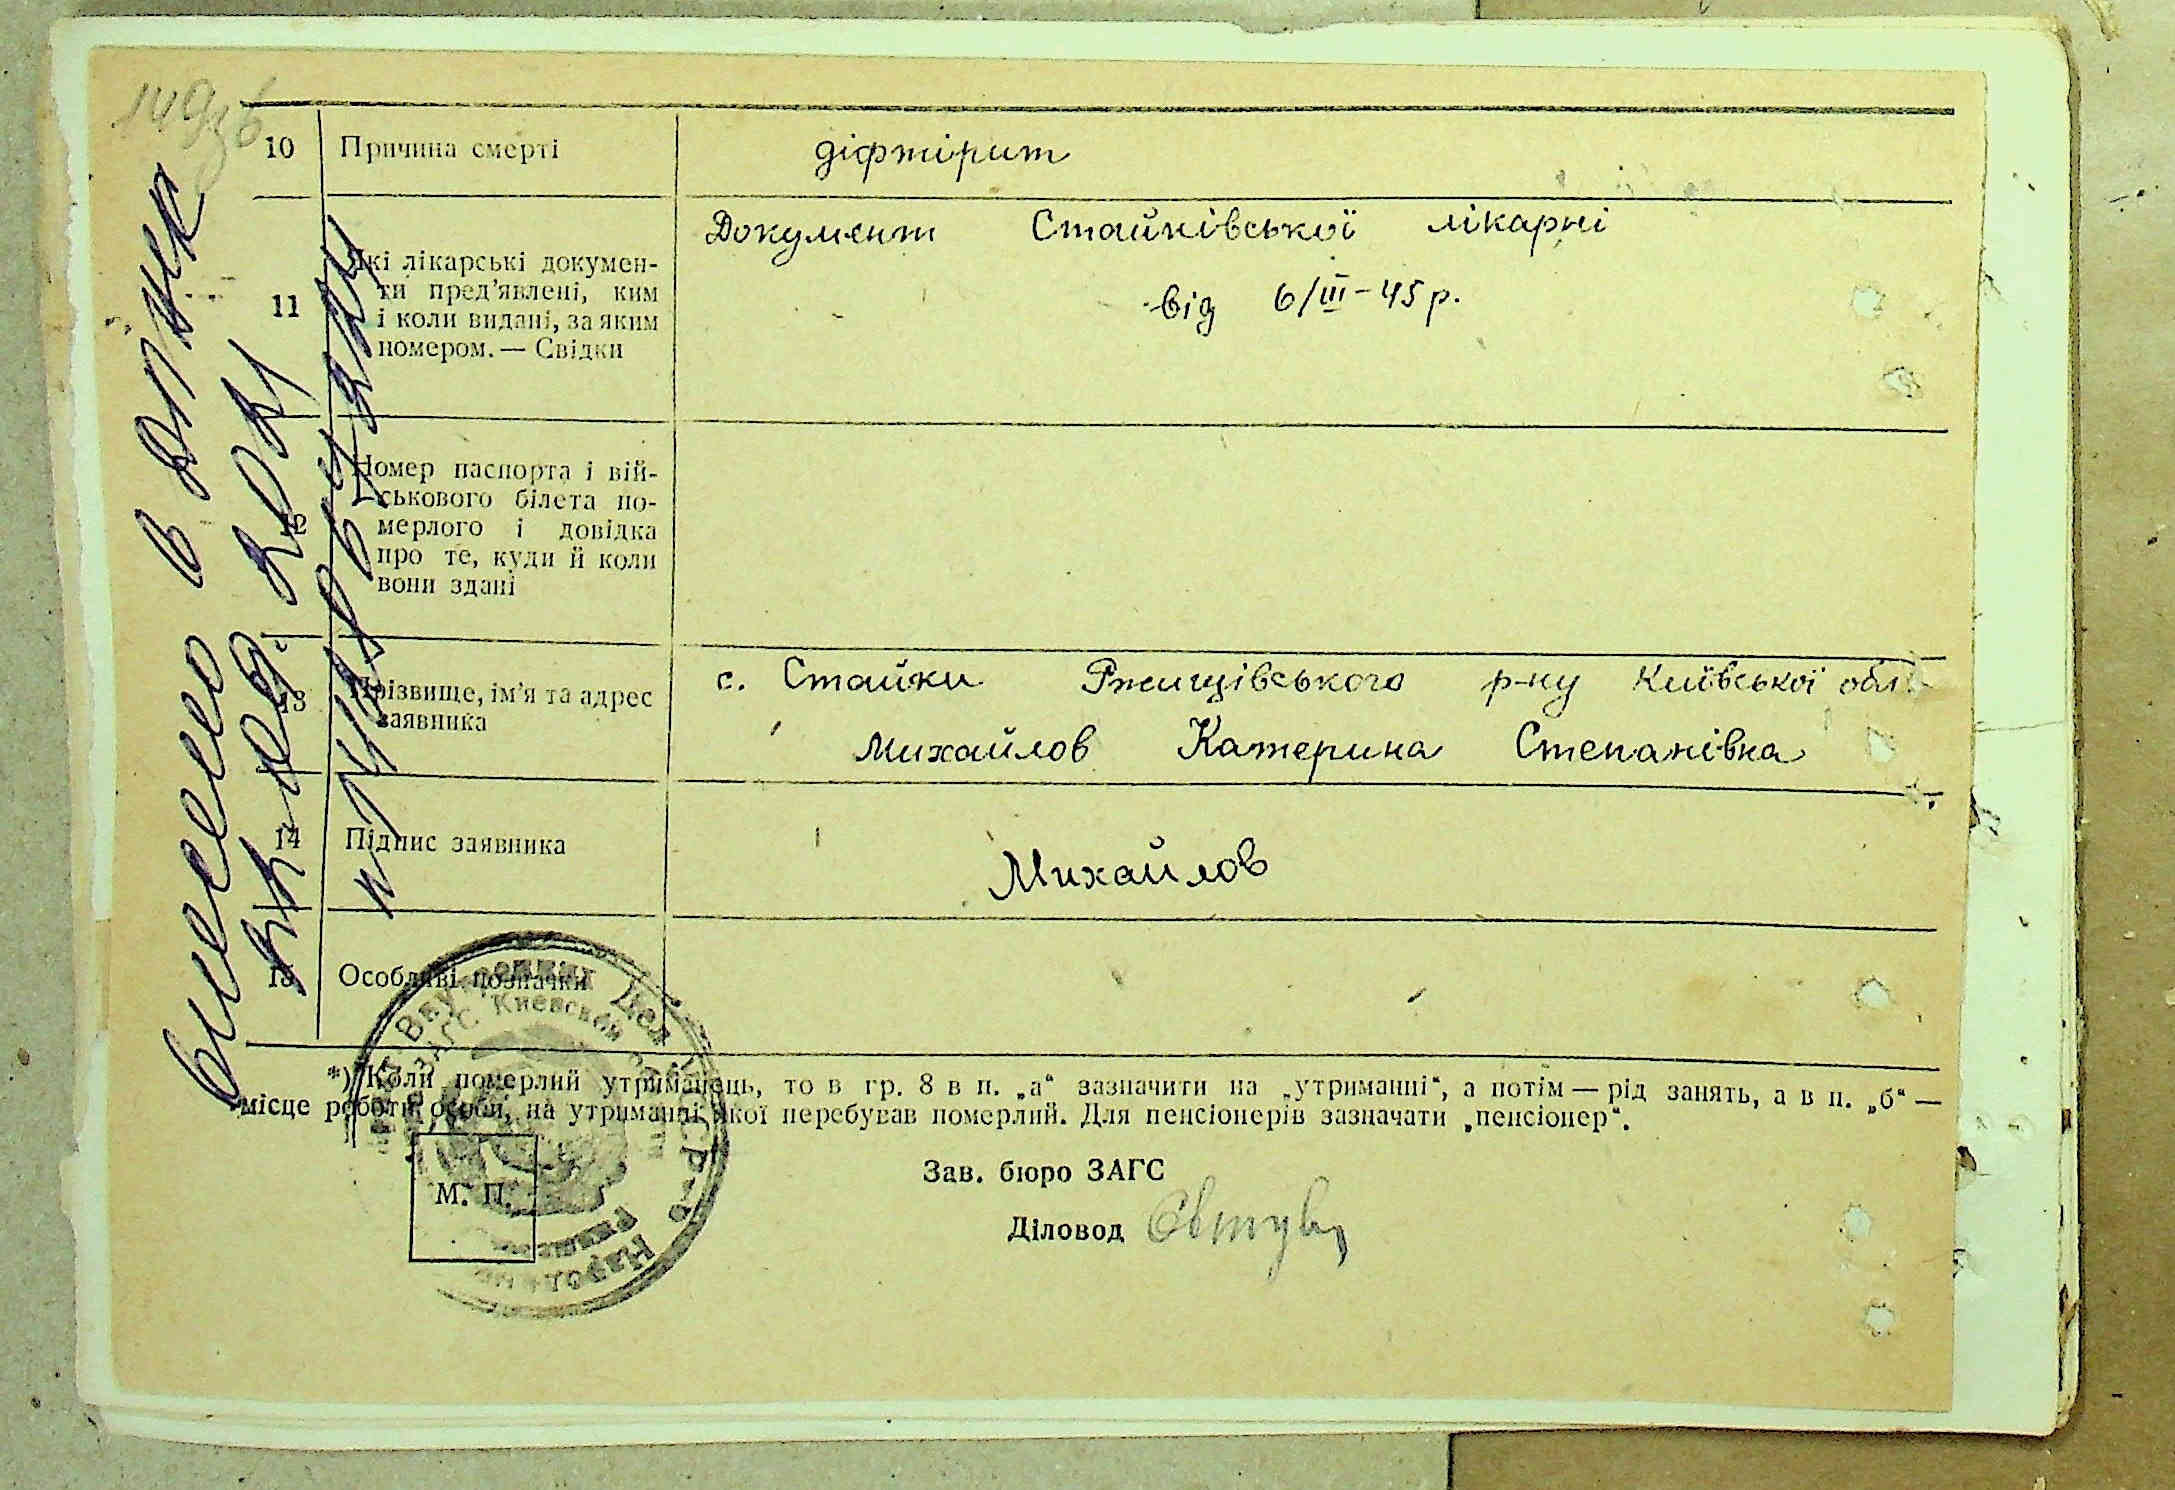 10 Причина смерті діфтірит
11 Які лікарські докумен-
ти пред'явлені, ким
і коли видані, за яким
номером. — Свідки
Документ Стайківської лікарні
від 6/III-45 р.
12 Номер паспорта і вій-
ськового білета по-
мерлого і довідка
про те, куди й коли
вони здані
13 Прізвище, ім'я та адрес
заявника
с. Стайки Ржищівського р-ну Київської обл
Михайлов Катерина Степанівна
14 Підпис заявника Михайлов
15 Особливі позначки
*) Коли померлий утриманець, то в гр. 8 в п. „а" зазначити на „утриманні", а потім — рід занять, а в п. „б" —
місце роботи особи, на утриманні якої перебував померлий. Для пенсіонерів зазначати „пенсіонер".
М. П.
Зав. бюро ЗАГС
Діловод
Внутренних Дел
ЗАГС Киевской